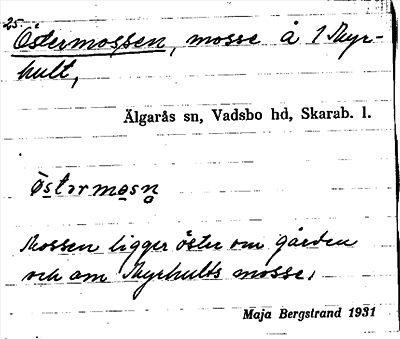 25.
Östermossen, mosse å 1 Myr-
hult,
Älgarås sn, Vadsbo hd, Skarab. l.
östərmosn̥
Mossen ligger öster om gården
och om Myrhults mosse.
Maja Bergstrand 1931